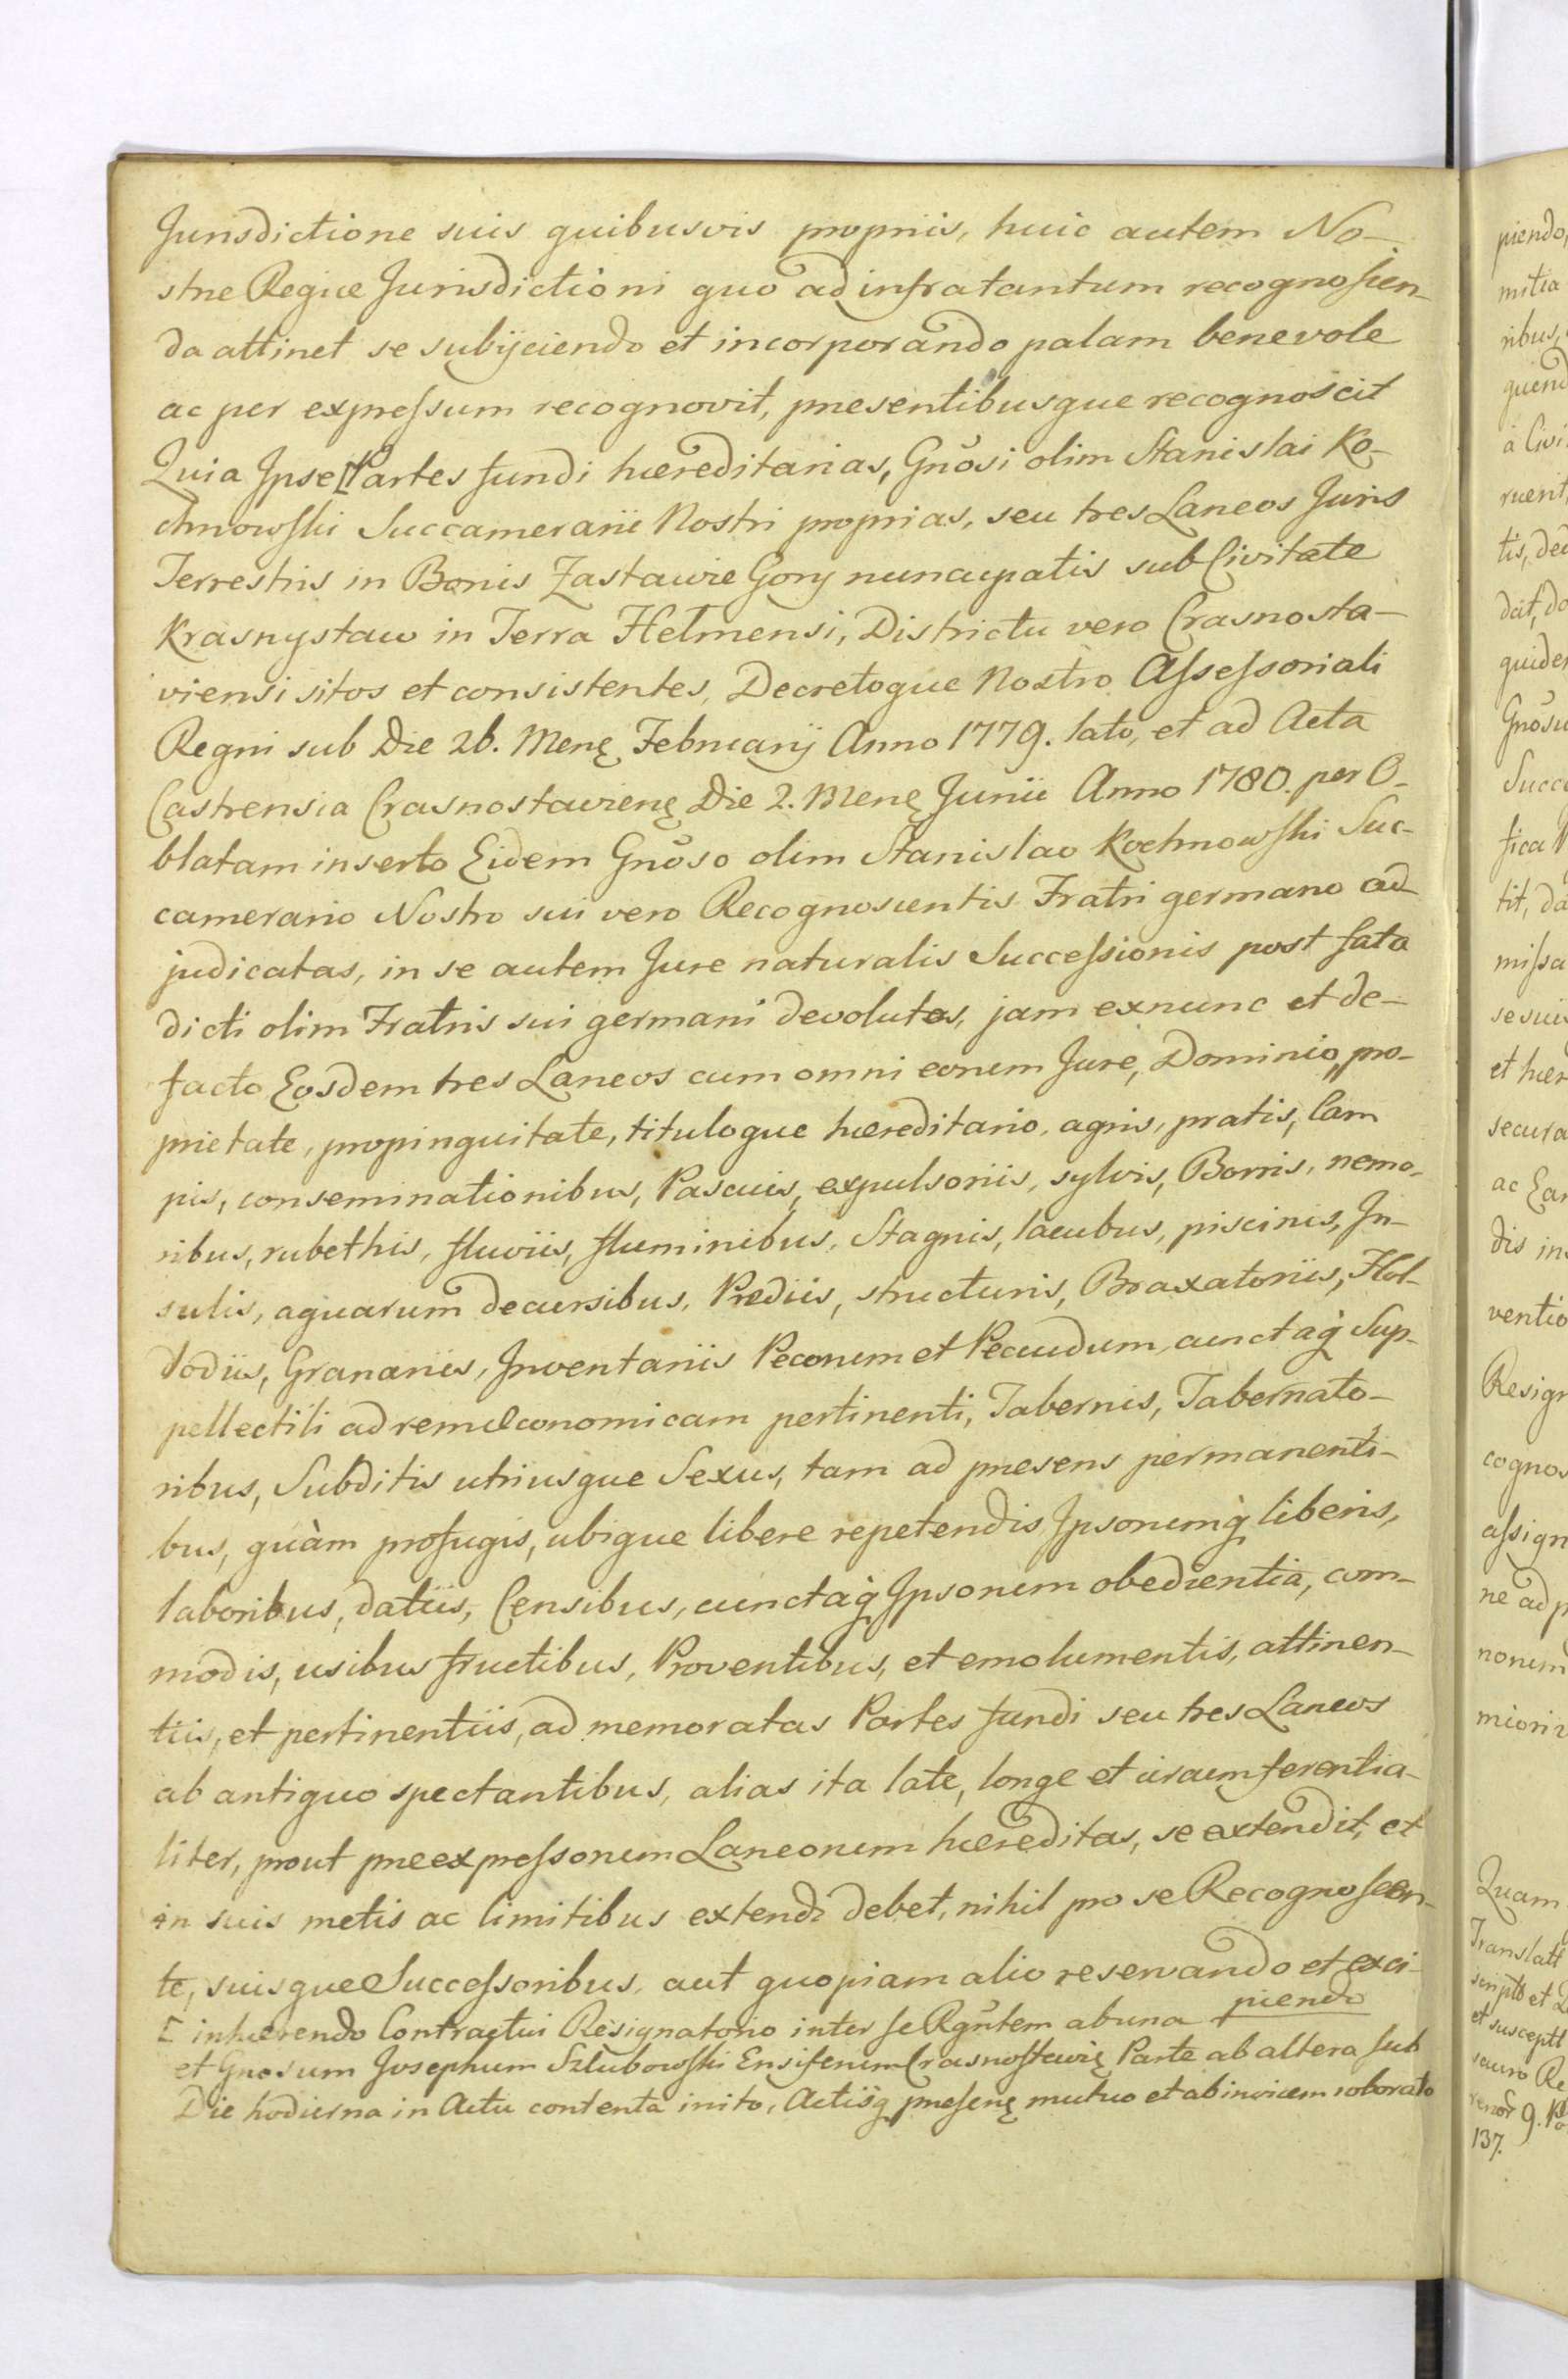 Jurisdictione suis quibusvis propriis, huic autem No-
stræ Regiæ Jurisdictioni quo ad infratantum recognoscen-
da attinet se subijciendo et incorporando palam benevole
ac per expressum recognovit, præsentibusque recognoscit
Quia Ipse [Partes fundi hæreditarias, Gnosi olim Stanislai Ko-
chnowski Succamerarii Nostri proprias, seu tres Laneos Juris
Terrestris in Bonis Zastawie Gory nuncupatis sub Civitate
Krasnystaw in Terra Helmensi, Districtu vero Crasnosta-
viensi sitos et consistentes, Decretoque Nostro Assessoriali
Regni sub Die 26. Menę Februarij Anno 1779. lato, et ad Acta
Castrensia Crasnostavienę Die 2. Menę Junii Anno 1780. per O-
blatam inserto Eidem Gnoso olim Stanislao Kochnowski Suc-
camerario Nostro sui vero Recognoscentis Fratri germano ad-
judicatas, in se autem Jure naturalis Successionis post fata
dicti olim Fratris sui germani devolutas, jam exnunc et de-
facto Eosdem tres Laneos cum omni eorum Jure, Dominio, pro-
prietate, propinquitate, tituloque hæreditario, agris, pratis, Cam
pis, conseminationibus, Pascuis, expulsoriis, sylvis, Borris, nemo-
ribus, rubethis, fluviis, fluminibus, Stagnis, lacubus, piscinis, In-
sulis, aquarum decursibus, Prædiis, structuris, Braxatoriis, Hol-
lodiis, Granariis, Inventariis Pecorum et Pecudum, cunctaq Sup-
pellectili ad rem œconomicam pertinenti, Tabernis, Tabernato-
ribus, Subditis utriusque Sexus, tam ad præsens permanenti-
bus, quàm profugis, ubique libere repetendis Ipsorumq liberis,
laboribus, datiis, Censibus, cunctaq Ipsorum obedientia, com-
modis, usibus fructibus, Proventibus, et emolumentis, attinen-
tiis, et pertinentiis, ad memoratas Partes fundi seu tres Laneos
ab antiquo spectantibus, alias ita late, longe et circumferentia-
liter, prout præexpressorum Laneorum hæreditas, se extendit, et
in suis metis ac limitibus extendi debet, nihil pro se Recognoscen-
te, suisque Successoribus, aut quopiam alio reservando et exci-
piendo
[ inhærendo Contractui Resignatorio inter se Rgntem ab una
et Gnosum Josephum Szlubowski Ensiferum Crasnostawię Parte ab altera sub
Die hodierna in Actu contenta inito, Actisq præsenę mutuo et abinvicem roborato
piendo,
mitia
ribus,
quend
à Civi
ruerit,
tis, ded
dat, do
quider
Gnosu
Succe
fica
tit, da
missa
se suis
et hær
secura
ac Ear
dis in
ventio
Resign
cognos
assign
ne ad p
norum
mioriz
Quam
Translatt
script et
et suscept
sauro Re
9.
137.